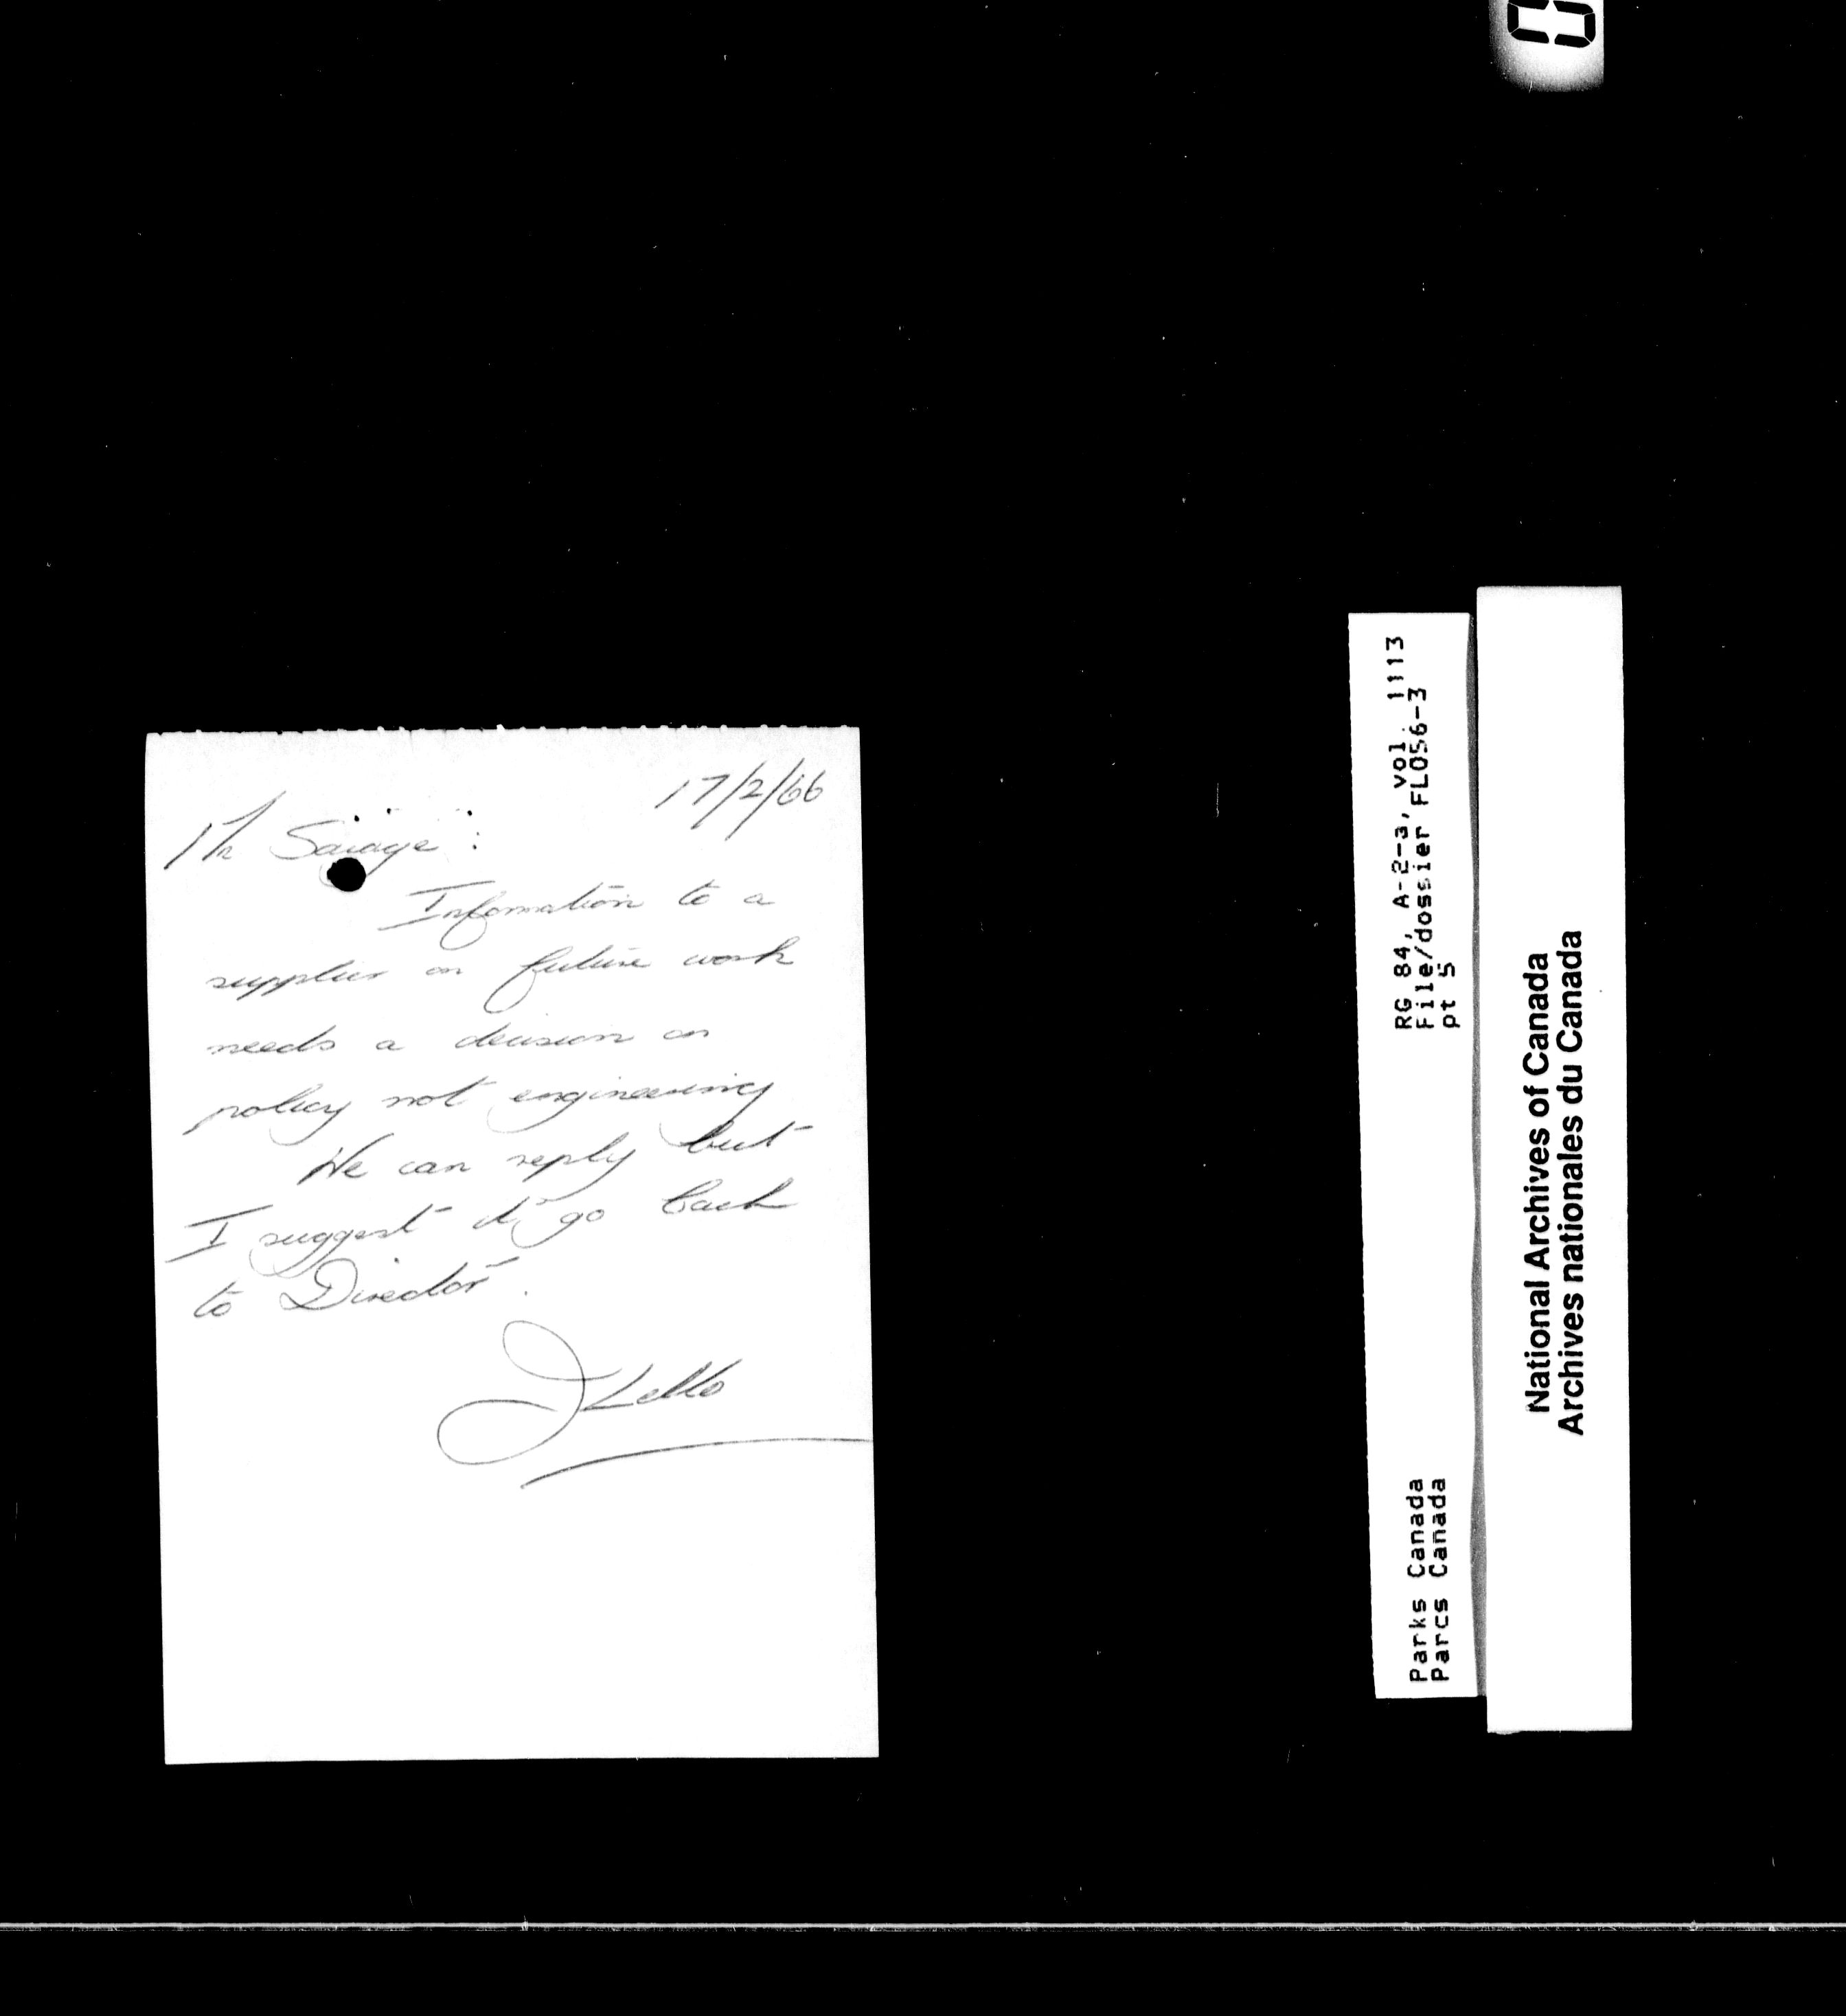 17/2/66
Mr Savage :
Information to a
supplier on future work
needs a decision on
policy not engineering
We can reply but
I suggest it go back
to Director.
RG 84, A-2-a, vol. 1113
File/dossier FLO56-3
pt 5
Parks Canada
Parcs Canada
National Archives of Canada
Archives nationales du Canada